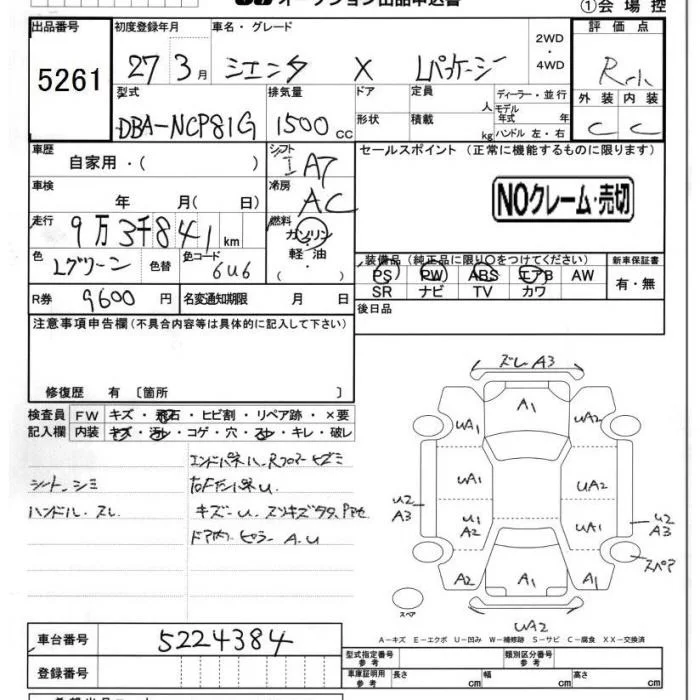 オークション出品申込書
①会場控
出品番号
5261
初度登録年月
27 3月
車名・グレード
シエンタ X Lパッケージ
2WD
・
4WD
評価点
外装 内装
C C
型式
DBA-NCP81G
排気量
1500cc
ドア
形状
定員
人
積載
kg
ディーラー・並行
モデル年式 年
ハンドル 左・右
車歴
自家用・( )
シフト
IA7
車検
年 月( 日)
冷房
AC
走行
9万3千841km
燃料
ガソリン
・
軽・油
( ・ )
色
Lグリーン
色替
色コード
6U6
R券
9600円
名変通知期限 月 日
セールスポイント(正常に機能するものに限ります)
NOクレーム・売切
装備品(純正品に限り○をつけてください)
PS PW ABS エアB AW
SR ナビ TV カワ
新車保証書
有・無
後日品
注意事項申告欄(不具合内容等は具体的に記入して下さい)
修復歴 有 〔箇所 〕
検査員
記入欄
FW キズ・飛石・ヒビ割・リペア跡・×要
内装 キズ・汚レ・コゲ・穴・スレ・キレ・破レ
シート、シミ
ハンドル、スレ
キズー U.
A.U
ズレ A3
A1
UA1
UA2
UA1
UA2
U2
A3
U1
A2
UA1
U2
A3
A2
A1
A1
スペア
スペア
UA2
A-キズ E-エクボ U-凹み W-補修跡 S-サビ C-腐食 XX-交換済
車台番号
5224384
登録番号
型式指定番号
参考
類別区分番号
参考
車庫証明用
参考
長さ cm
幅 cm
高さ cm